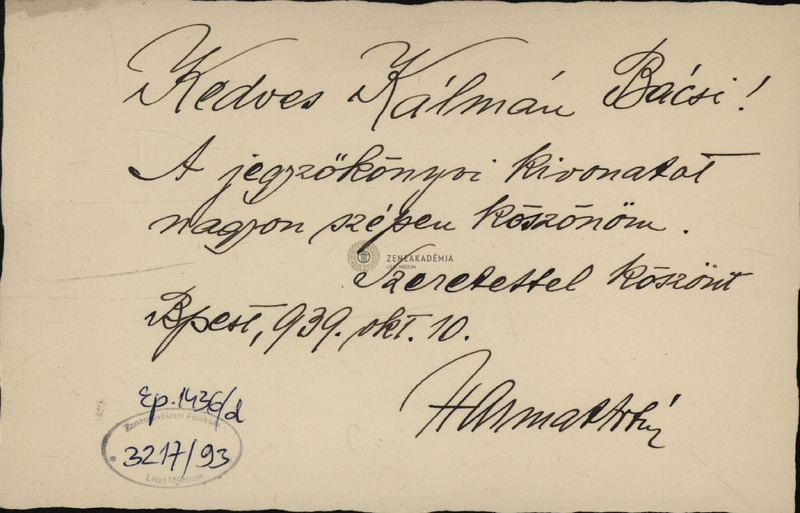 Kedves Kálmán Bácsi!
A jegyzőkönyvi kivonatot
nagyon szépen köszönöm.
ZENEAKADÉMIA
LISZT MÚZEUM
Szeretettel köszönt
Bpest, 939. okt. 10.
Harmat Artúr
Ep. 1436/d
Zeneművészeti Főiskola
3217/93
Liszt Múzeum